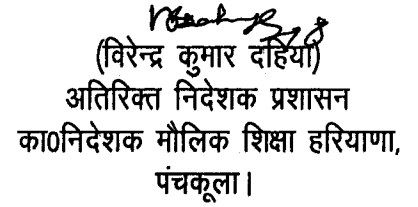 (विरेन्द्र कुमार दहिया)
अतिरिक्त निदेशक प्रशासन
का0निदेशक मौलिक शिक्षा हरियाणा,
पंचकूला।